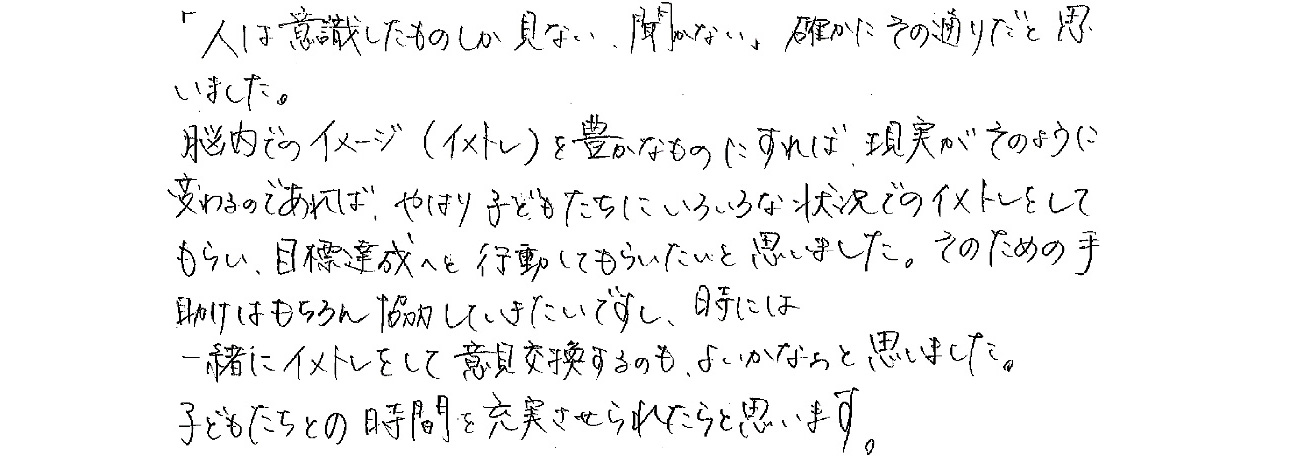 「人は意識したものしか見ない、聞かない」確かにその通りだと思
いました。
脳内でのイメージ（イメトレ）を豊かなものにすれば、現実がそのように
変わるのであれば、やはり子どもたちにいろいろな状況でのイメトレをして
もらい、目標達成へと行動してもらいたいと思いました。そのための手
助けはもちろん協力していきたいですし、時には
一緒にイメトレをして意見交換するのも、よいかなぁと思いました。
子どもたちとの時間を充実させられたらと思います。